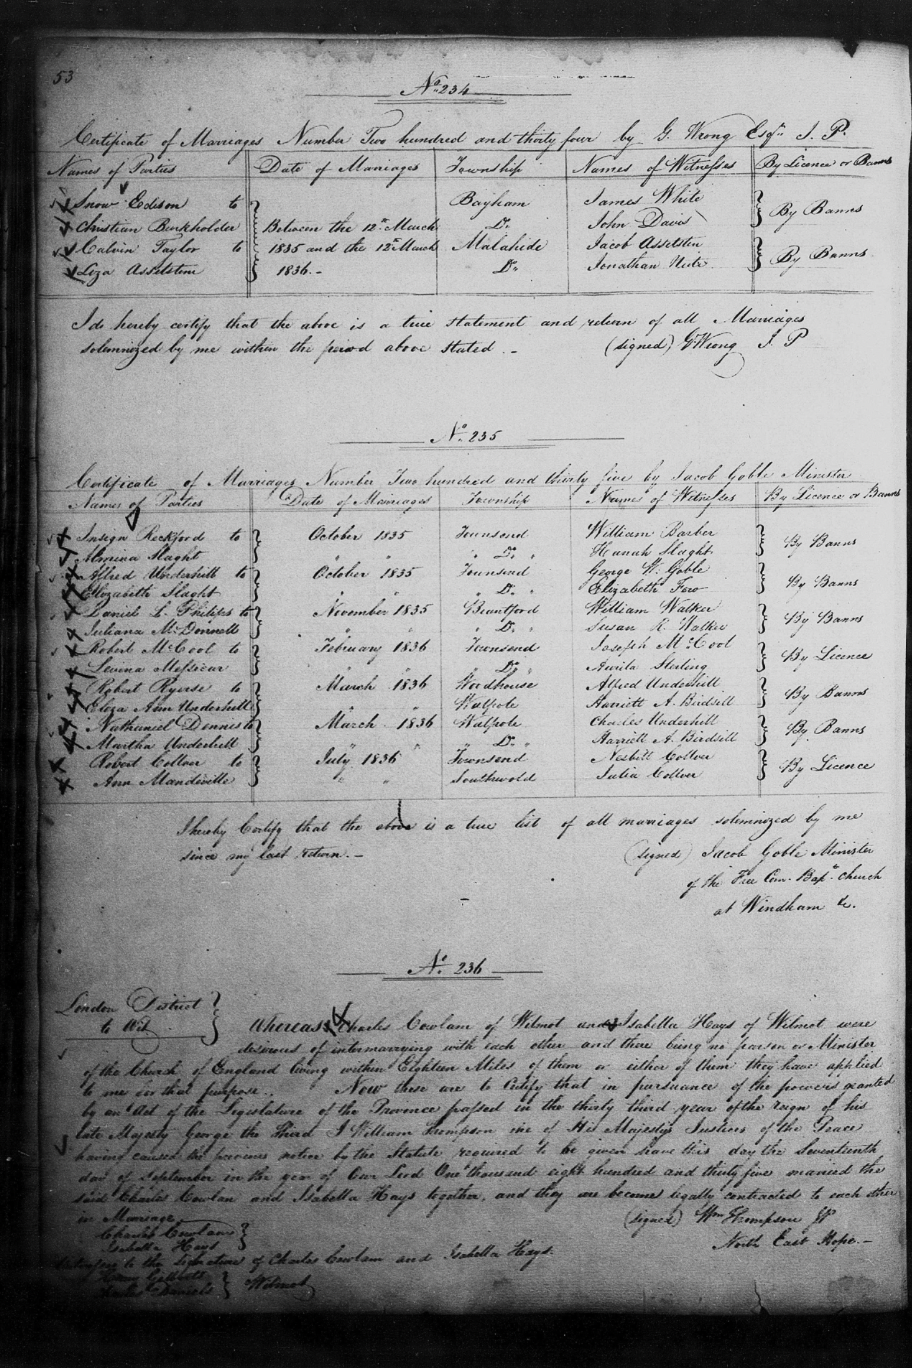 53
No. 234
Certificate of Marriages Number Two hundred and thirty four by G. Wrong Esqr. J. P.
Names of Parties Date of Marriages Township Names of Witnesses By Licence or Banns
Snow Edison to Bayham James White By Banns
Christian Burkholder Between the 12th March Do. John Davis
Calvin Taylor to 1835 and the 12th March Malahide Jacob Asselstin By Banns
Liza Asselstine 1836.- Do. Jonathan
I do hereby certify that the above is a true statement and return of all Marriages
solemnized by me within the period above stated.- (signed) G Wrong J. P
No. 235
Certificate of Marriages Number Two hundred and thirty five by Jacob Goble Minister
Names of Parties Date of Marriages Township Names of Witnesses By Licence or Banns
Insign Reckford to October 1835 Townsend William Barber By Banns
Almina Slaght " " " Do. " Hannah Slaght
Alfred Underhill to October 1835 Townsend George W. Goble By Banns
Elizabeth Slaght " Do. " Elizabeth
Daniel L. Philips to November 1835 Brantford William Walker By Banns
Juliana McDonnell " " " Do. " Susan R. Walker
Robert McCool to February 1836 Townsend Joseph McCool By Licence
Levina Messicar " " " Do. " Sterling
Robert Ryerse to March 1836 Woodhouse Alfred Underhill By Banns
Eliza Ann Underhill Walpole Harriett A. Birdsill
Nathaniel Dennis to March 1836 Walpole Charles Underhill By Banns
Martha Underhill " " " Do. " Harriett A. Birdsill
Robert Collver to July 1836 Townsend Nesbitt Collver By Licence
Ann Mandeville " " Southwold Julia Collver
I hereby Certify that the above is a true list of all marriages solemnized by me
since my last return.- (signed) Jacob Goble Minister
of the Free Com. Bapt. Church
at Windham &c.
No. 236
London District
to Wit
Whereas Charles Cowlam of Wilmot and Isabella Hays of Wilmot were
desirous of intermarrying with each other and there being no parson or Minister
of the Church of England living within Eighteen Miles of them or either of them they have applied
to me for that purpose.. Now these are to Certify that in pursuance of the powers granted
by an Act of the Legislature of the Province passed in the thirty third year of the reign of his
late Majesty George the Third I William Thompson one of His Majestys Justices of the Peace
having caused the previous notice by the Statute required to be given have this day the Seventeenth
day of September in the year of Our Lord One thousand eight hundred and thirty five married the
said Charles Cowlan and Isabella Hays together, and they are become legally contracted to each other
in Marriage. (signed) Wm. Thompson JP
Charles Cowlam
Isabella Hays North East Hope.-
to the Signatures of Charles Cowlam and Isabella Hays.
Wilmot